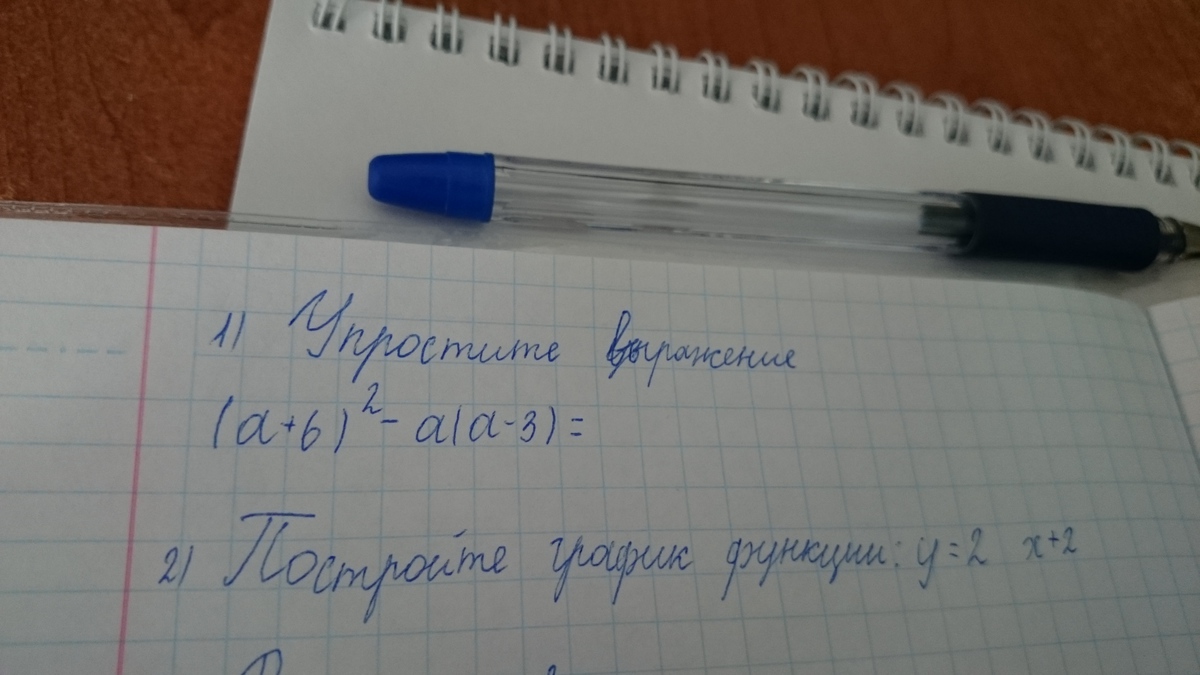 1) Упростите выражение
(a+6)² - a(a-3)=
2) Постройте график функции: y=2 x+2